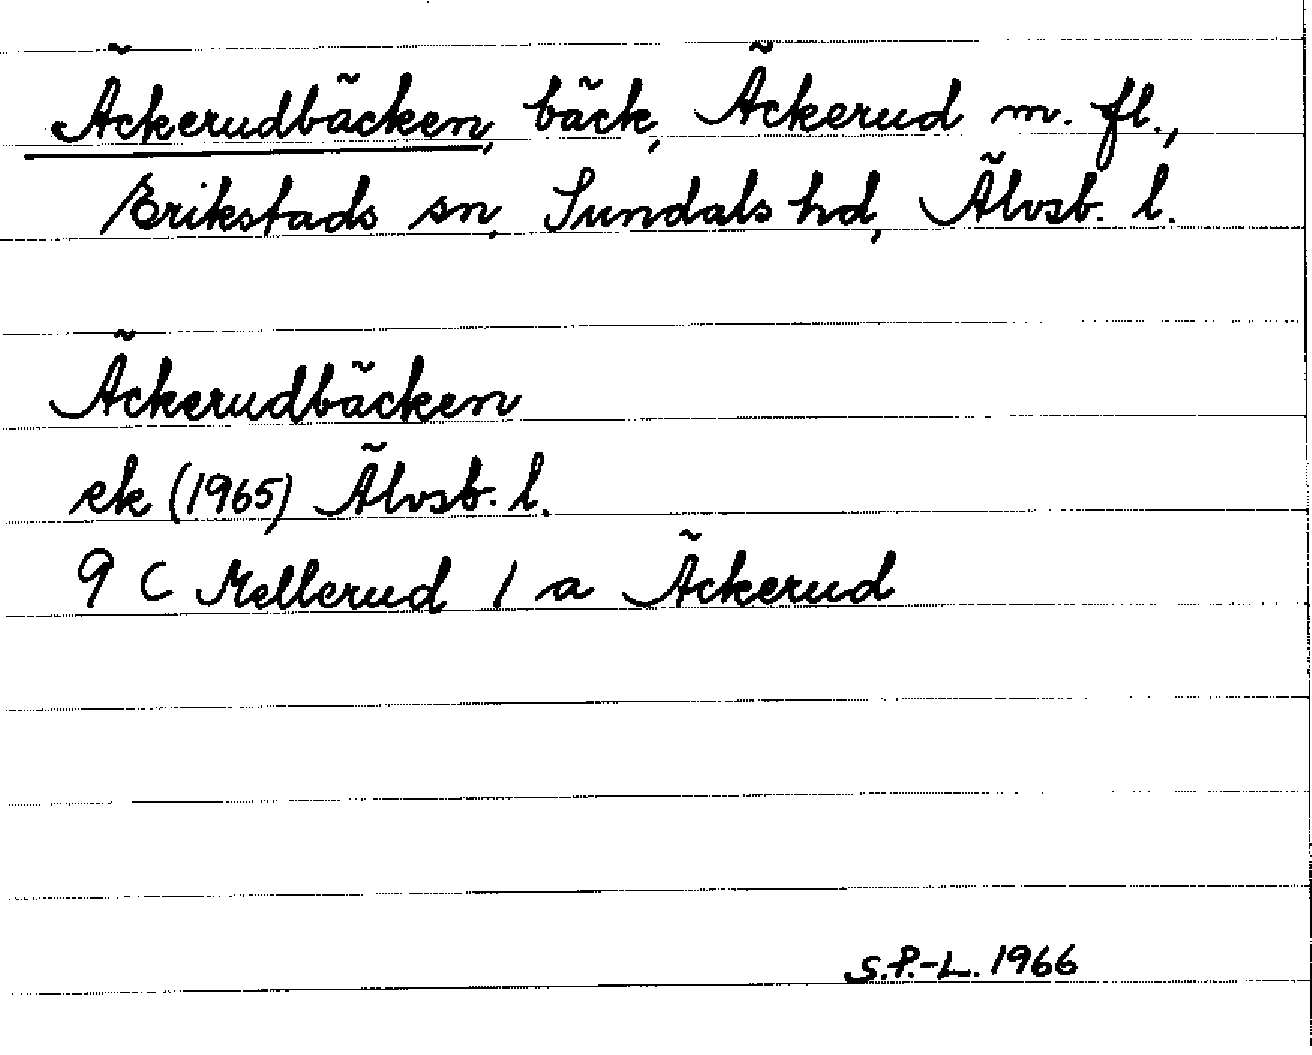 Äckerudbäcken, bäck, Äckerud m. fl.,
Erikstads sn, Sundals hd, Älvsb. l.
Äckerudbäcken
ek (1965) Älvsb. l.
9 C Mellerud 1 a Äckerud
S.P.-L. 1966